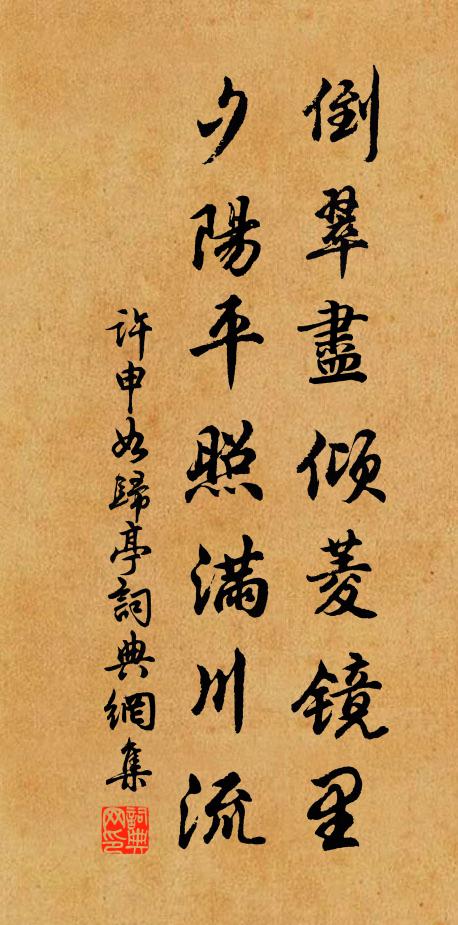 倒翠盡傾菱镜里
夕陽平照滿川流
許申如歸亭詞典網集
詞典网印